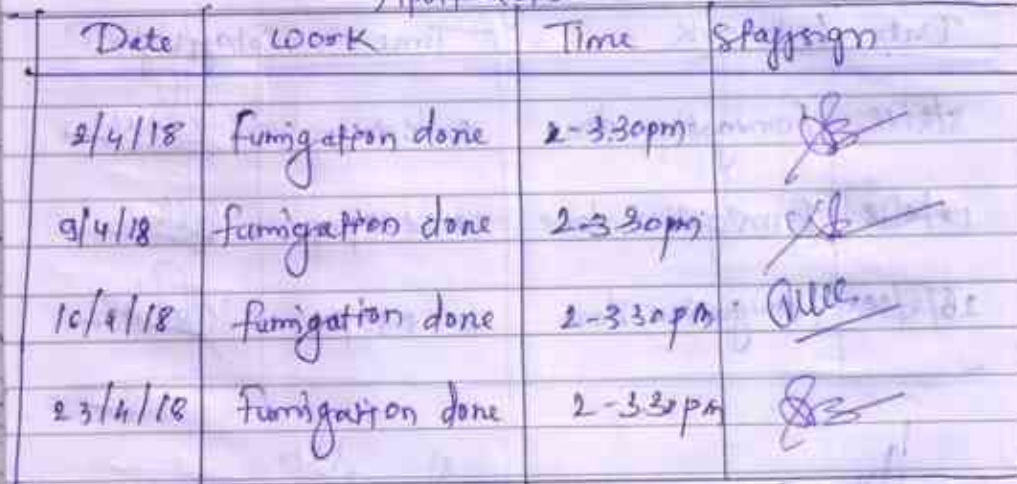 Date Work Time Staffsign
2/4/18 fumigation done 2-3.30pm
9/4/18 fumigation done 2-3 30pm
16/4/18 fumigation done 2-330pm
23/4/18 fumigation done 2-330pm